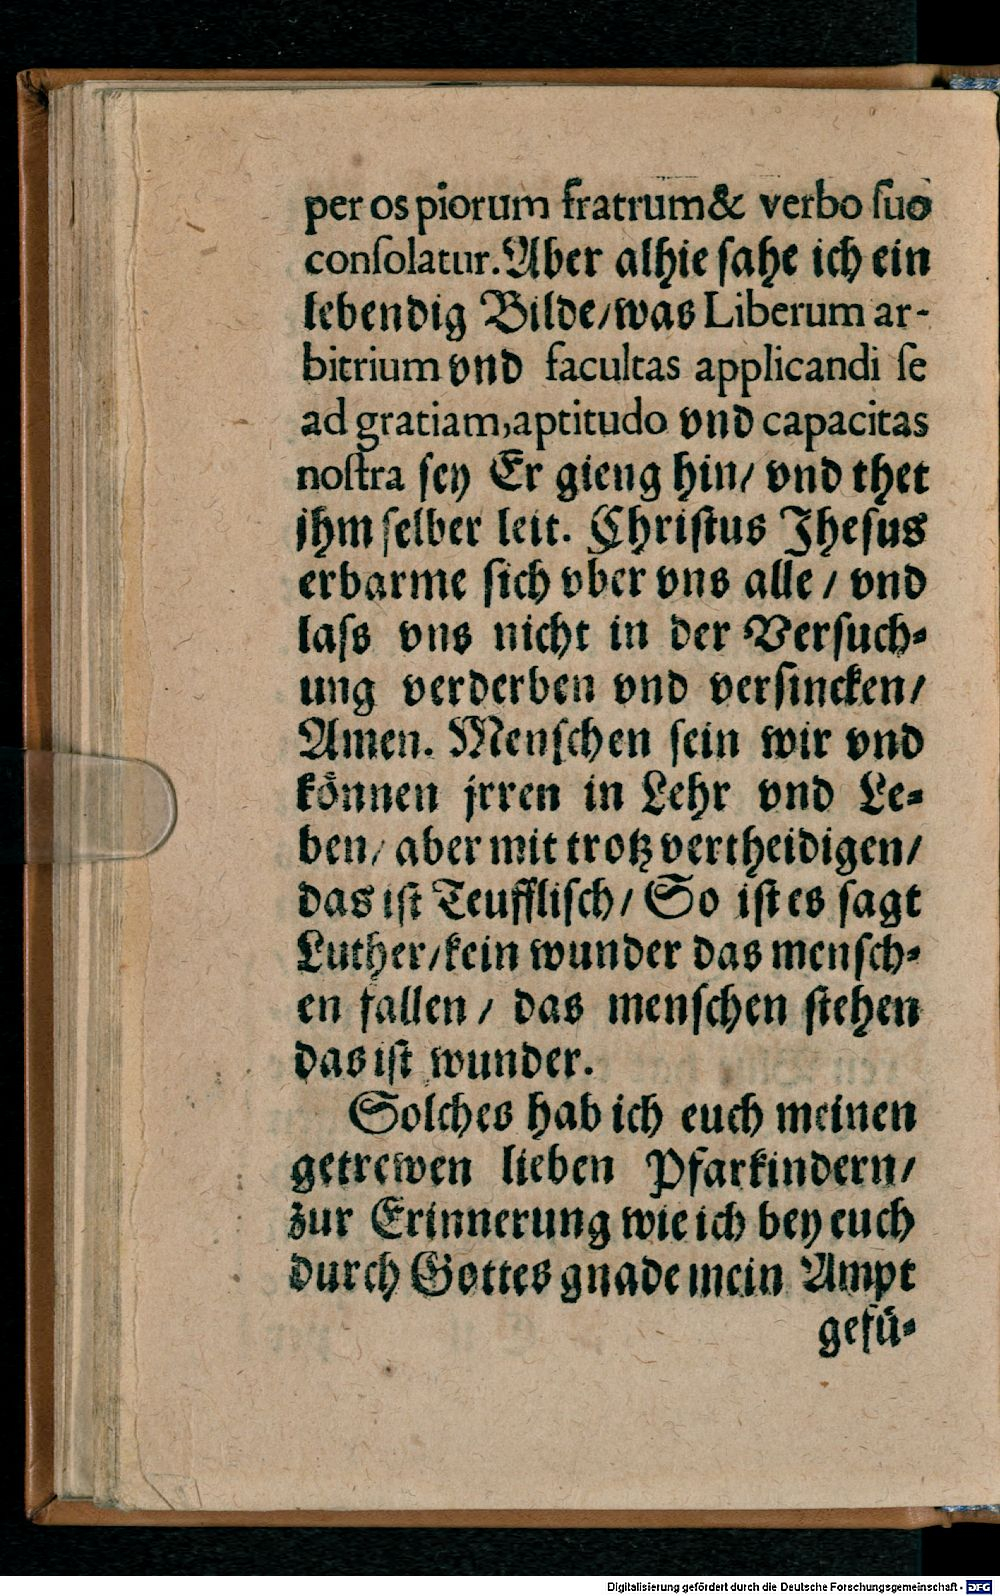 per os piorum fratrum & verbo ſuo
conſolatur. Aber alhie ſahe ich ein
lebendig Bilde/ was Liberum ar-
bitrium vnd facultas applicandi ſe
ad gratiam, aptitudo vnd capacitas
noſtra ſey Er gieng hin/ vnd thet
jhm ſelber leit. Chriſtus Jheſus
erbarme ſich vber vns alle / vnd
laſs vns nicht in der Verſuch-
ung verderben vnd verſincken/
Amen. Menſchen ſein wir vnd
können jrren in Lehr vnd Le-
ben/ aber mit trotz vertheidigen/
das iſt Teufflisch/ So iſt es ſagt
Luther/ kein wunder das menſch-
en fallen / das menſchen ſtehen
das iſt wunder.
Solches hab ich euch meinen
getrewen lieben Pfarkindern/
zur Erinnerung wie ich bey euch
durch Gottes gnade mein Ampt
gefü-
Digitalisierung gefördert durch die Deutsche Forschungsgemeinschaft - DFG